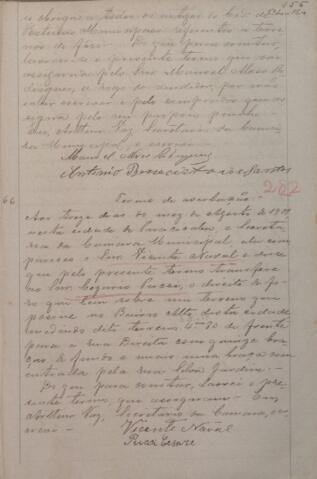 155
se obriga a todos os artigos do Cod. de
Posturas Municipaes referentes a terre-
nos de foro. E de que para constar,
lavrou-se o presente termo que vae
assignado pelo Snr. Manoel Alves Ro-
drigues, a rogo do vendedor, por não
saber escrever e pelo comprador que as-
signa pelo seu proprio punho.
Eu, Vaz, Secretario da Cama-
ra Municipal, o escrevi.
Manoel Alves
Antonio dos Santos
202
66
Termo de averbação
Aos treze de do mez de Agosto de 1909,
nesta cidade de a Secreta-
ria da Camara Municipal, ahi com-
pareceo o Snr. Vicente Naval e disse
que pelo presente termo transfere
ao Snr. Cezario o direito de fo-
ro que tem sobre um terreno que
possue no Bairro Alto, desta cidade
medindo dito terreno 4m 70 de frente
para a rua Direita com quinze bra-
ças de fundo e mais uma braça com
entrada pela rua Silva Jardim.
E de que para constar, lavrei o pre-
sente termo, que assignaram. Eu,
Vaz, Secretario da Camara, es-
crevi.
Vicente Naval
Cesare